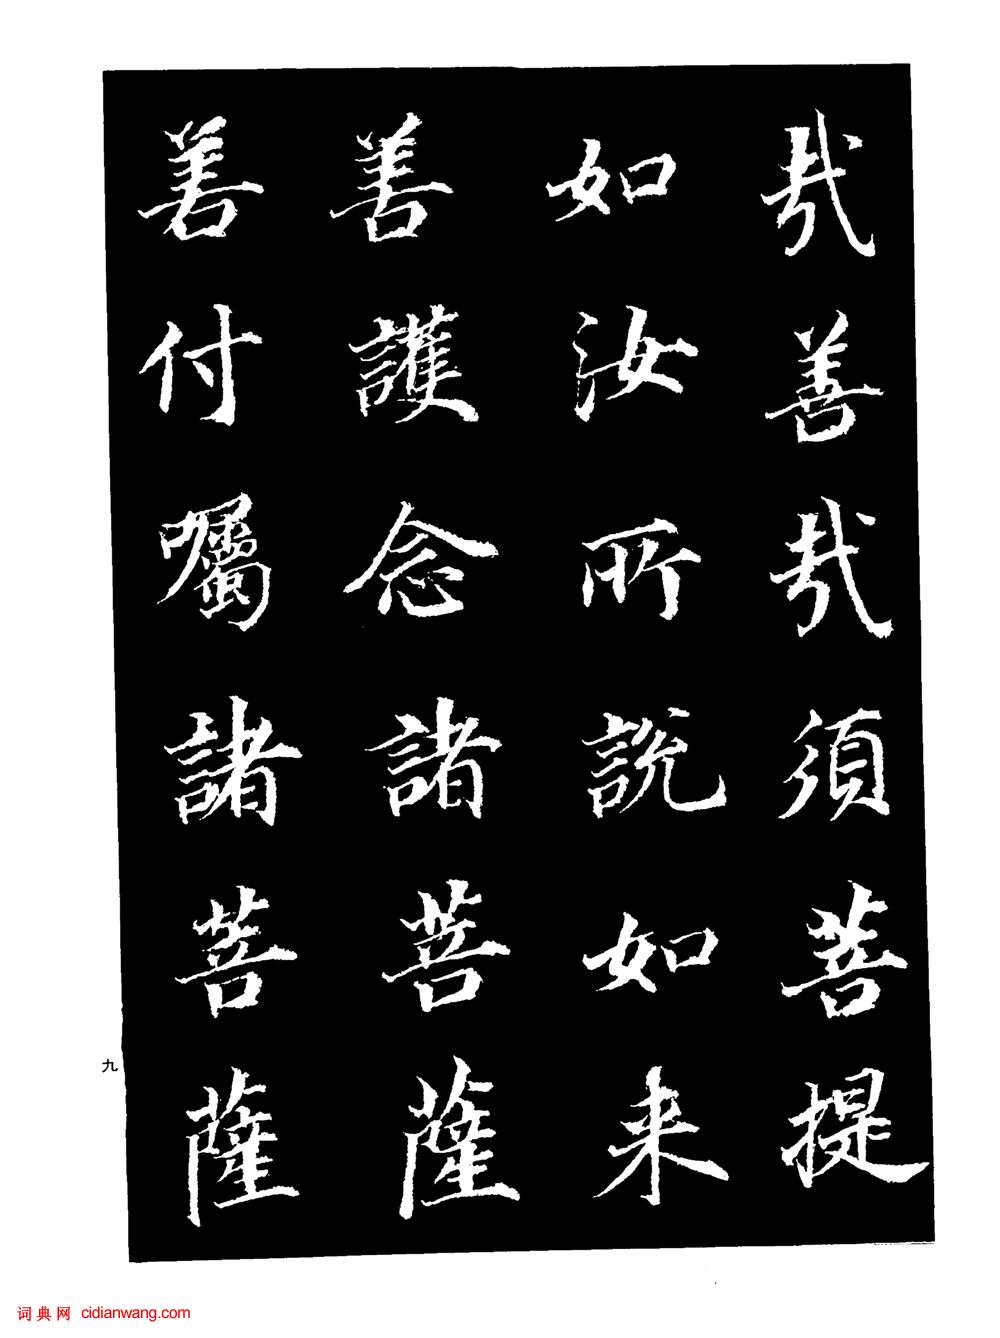 哉善哉須菩提
如汝所說如来
善護念諸菩薩
善付囑諸菩薩
九
词典网 cidianwang.com